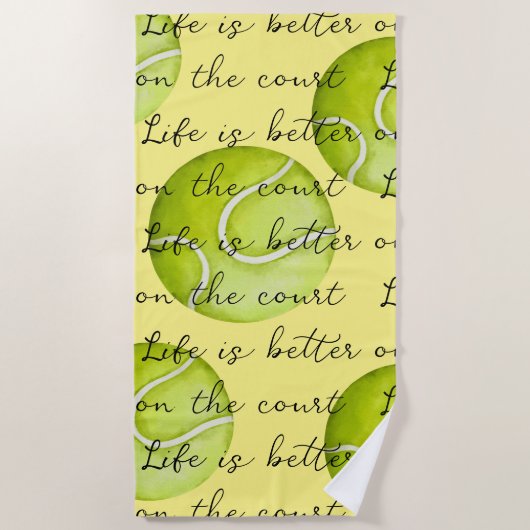 Life is better o
on the court L
Life is better o
on the court L
Life is better o
on the court L
Life is better o
on the court
Life is better
on the court